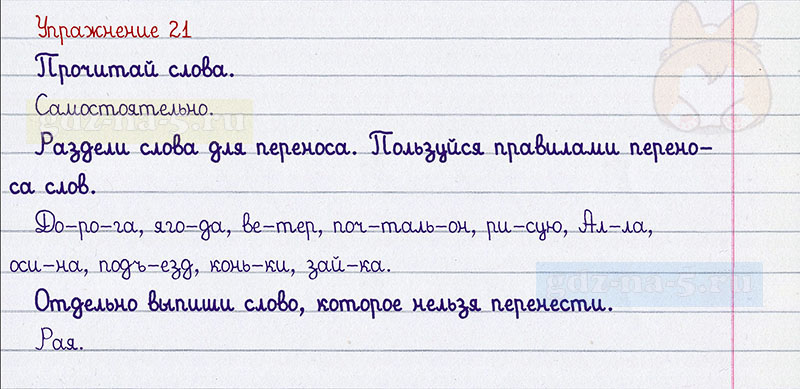 Упражнение 21
Прочитай слова.
Самостоятельно.
gdz-na-5.ru
Раздели слова для переноса. Пользуйся правилами перено-
са слов.
До-ро-га, яго-да, ве-тер, поч-таль-он, ри-сую, Ал-ла,
оси-на, подъ-езд, конь-ки, зай-ка.
gdz-na-5.ru
Отдельно выпиши слово, которое нельзя перенести.
Рая.